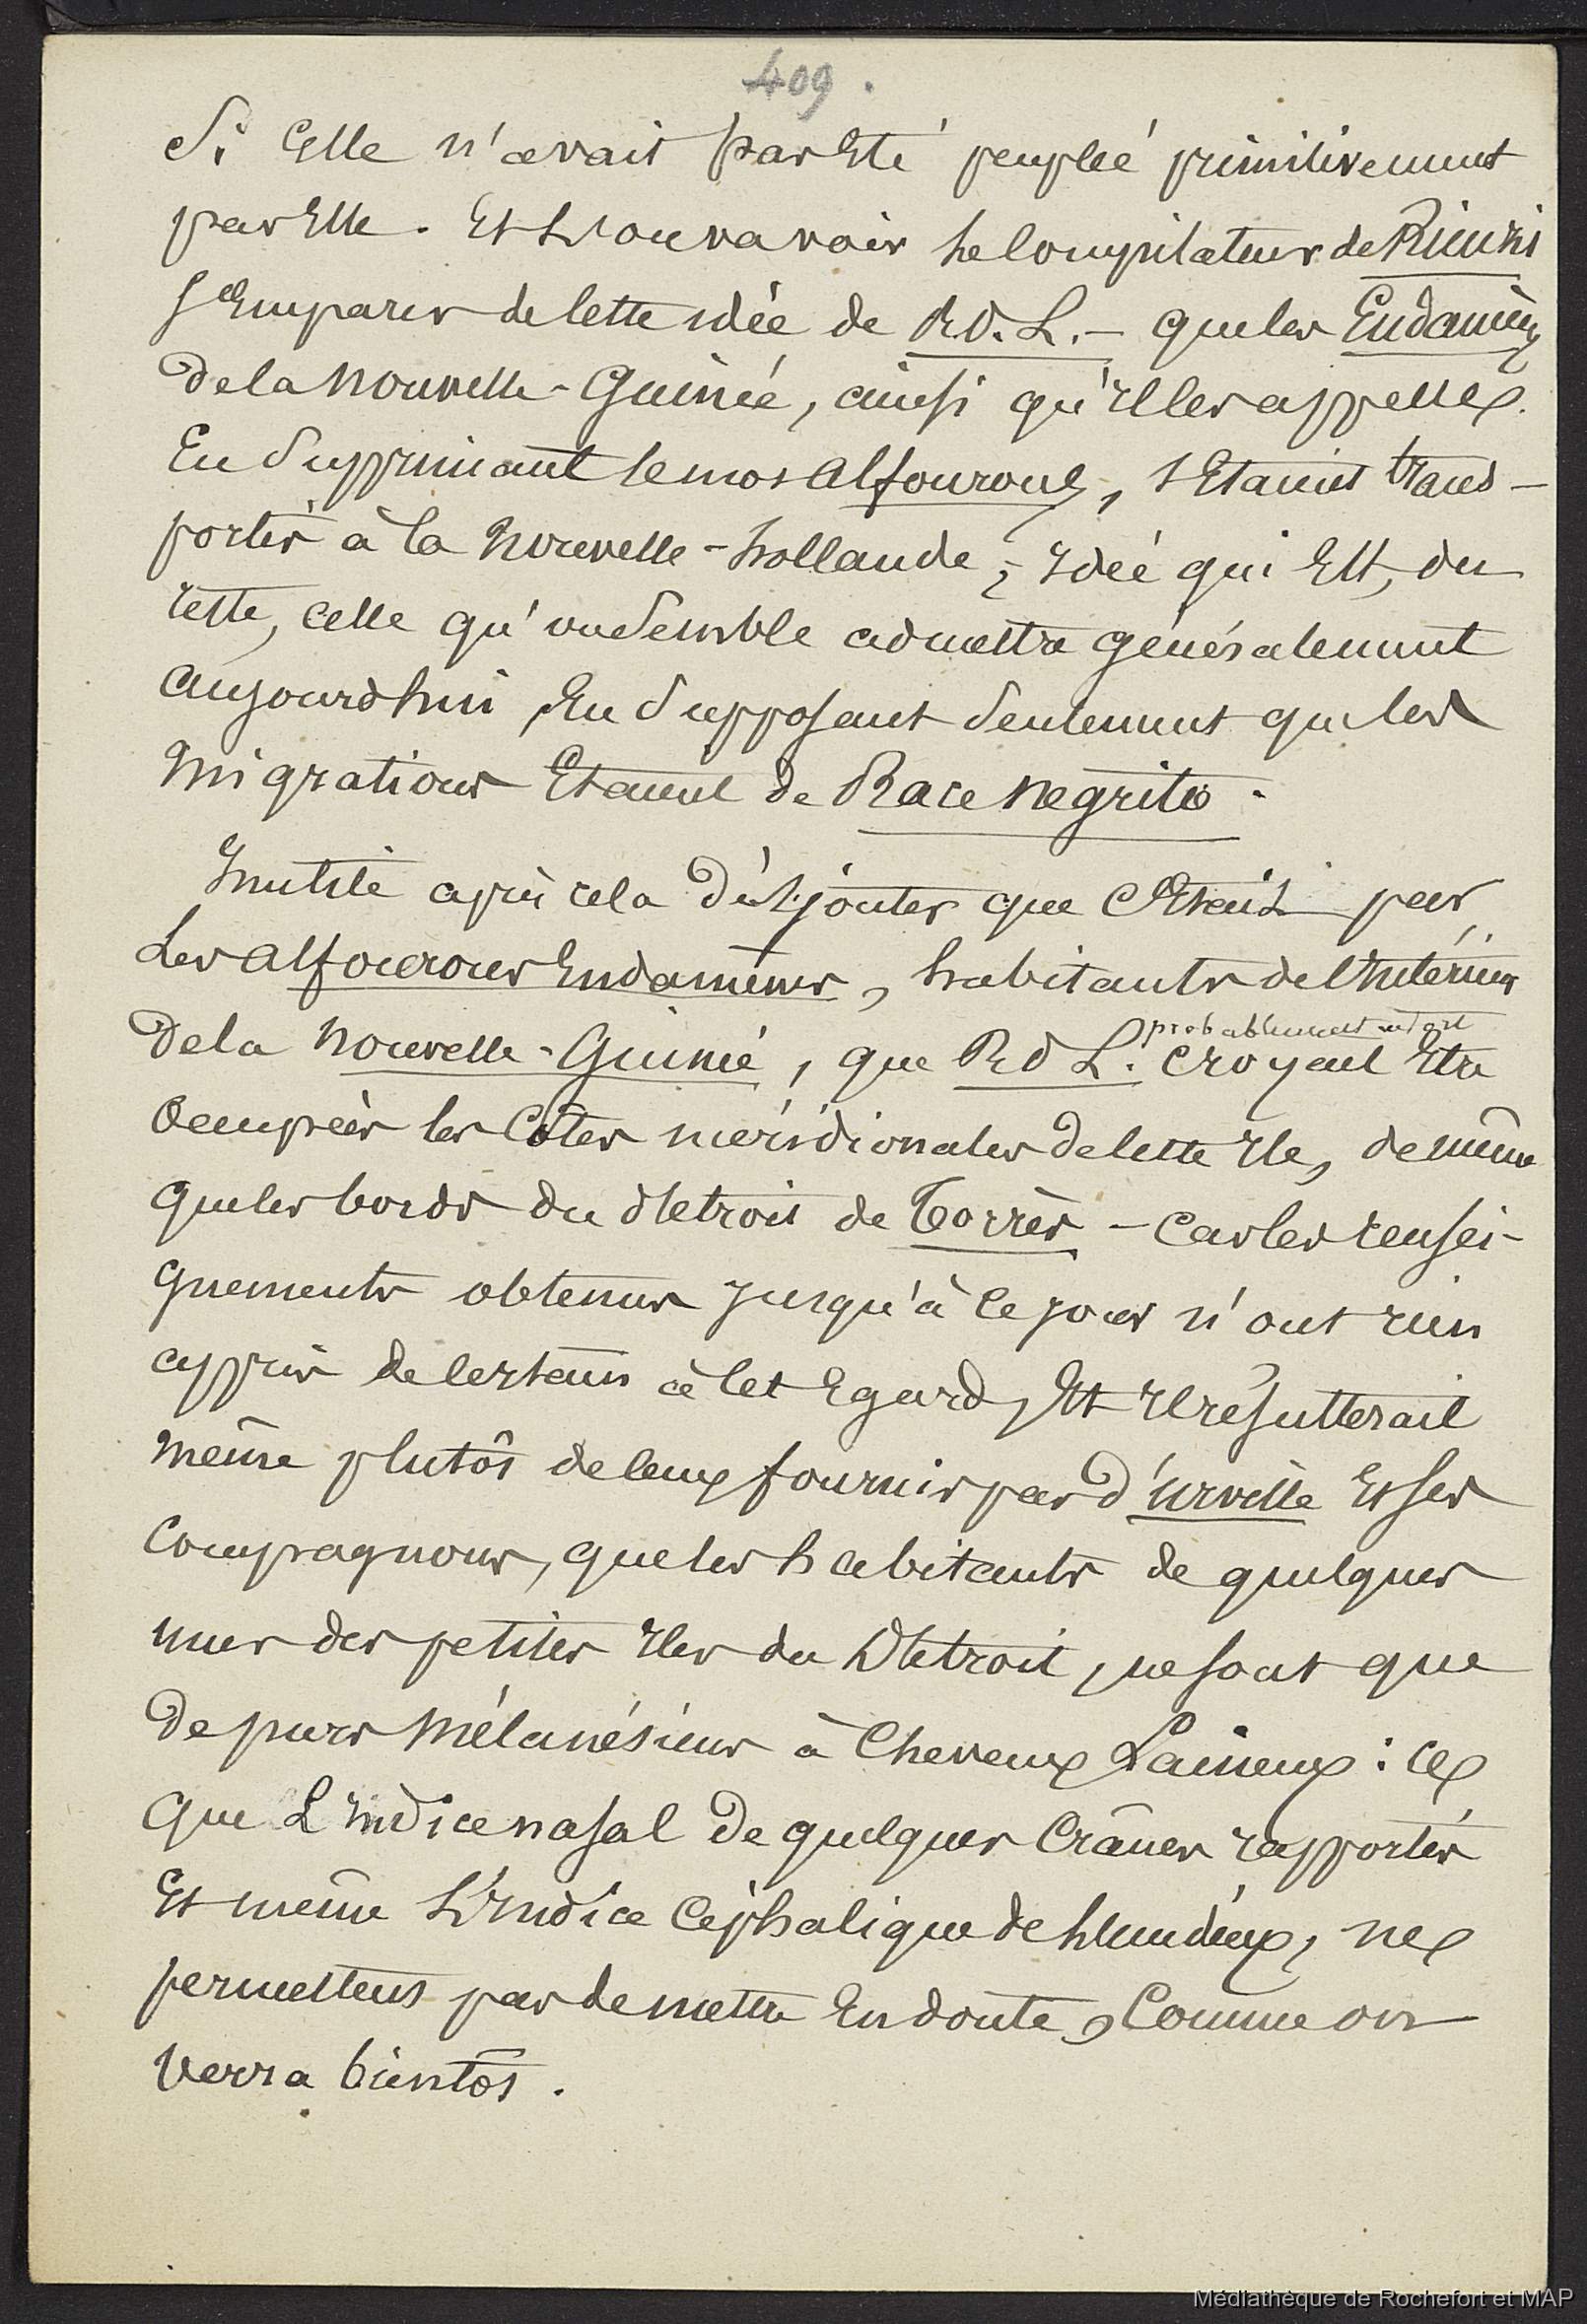 409.
Si Elle n'avait pas Eté peuplée primitivement
par Elle. Et l'on va voir le Compilateur de Rienzi
s'Emparer de Cette idée de R.d.L. – que les Endamènes
de la Nouvelle-Guinée, ainsi qu'Il les appelle
En Supprimant le mot Alfourous, s'Etaient trans-
portés à la Nouvelle-hollande, Idée qui Est, du
reste, celle qu'on Semble admettre généralement
aujourd'hui, En Supposant Seulement que les
Migrations Etaient de Race Négrito.
Inutile après cela d'Ajouter que C'Etait par
les Alfourous Endamènes, habitants de l'Intérieur
de la Nouvelle-Guinée, que R d L. croyait Etre
probablement
occupées les Côtes méridionales de Cette Ile, de même
que les bords du détroit de Torrès – Car les rensei-
gnements obtenus Jusqu'à Ce Jour n'ont rien
appris de Certain à Cet Egard, Et Il résulterait
même plutôt de Ceux fournis par d'Urville Et Ses
Compagnons, que les habitants de quelques
unes des petites Iles du Détroit, ne sont que
de purs Mélanésiens à Cheveux Laineux : ce
que L'Indice nasal de quelques Crânes rapportés
Et même L'Indice Céphalique de l'un d'eux, ne
permettent pas de mettre En doute, Comme on
verra bientôt.
Médiathèque de Rochefort et MAP